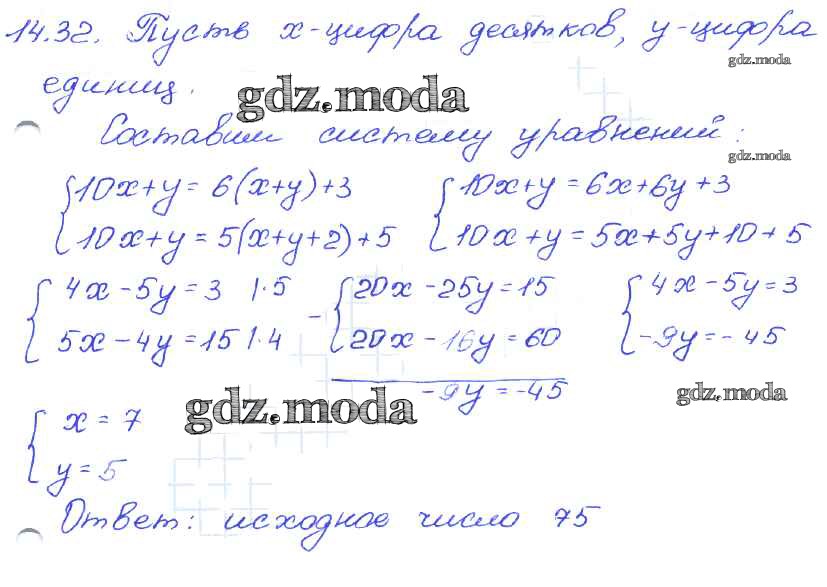 14.32. Пусть x-цифра десятков, y-цифра
gdz.moda
единиц.
gdz.moda
Составим систему уравнений:
gdz.moda
{10x+y = 6(x+y)+3 {10x+y = 6x+6y+3
{10x+y = 5(x+y+2)+5 {10x+y = 5x+5y+10+5
{4x-5y=3 |·5 - {20x-25y=15 {4x-5y=3
{5x-4y=15 |·4 {20x-16y=60 {-9y=-45
-9y=-45
gdz.moda
gdz.moda
{x=7
{y=5
Ответ: исходное число 75